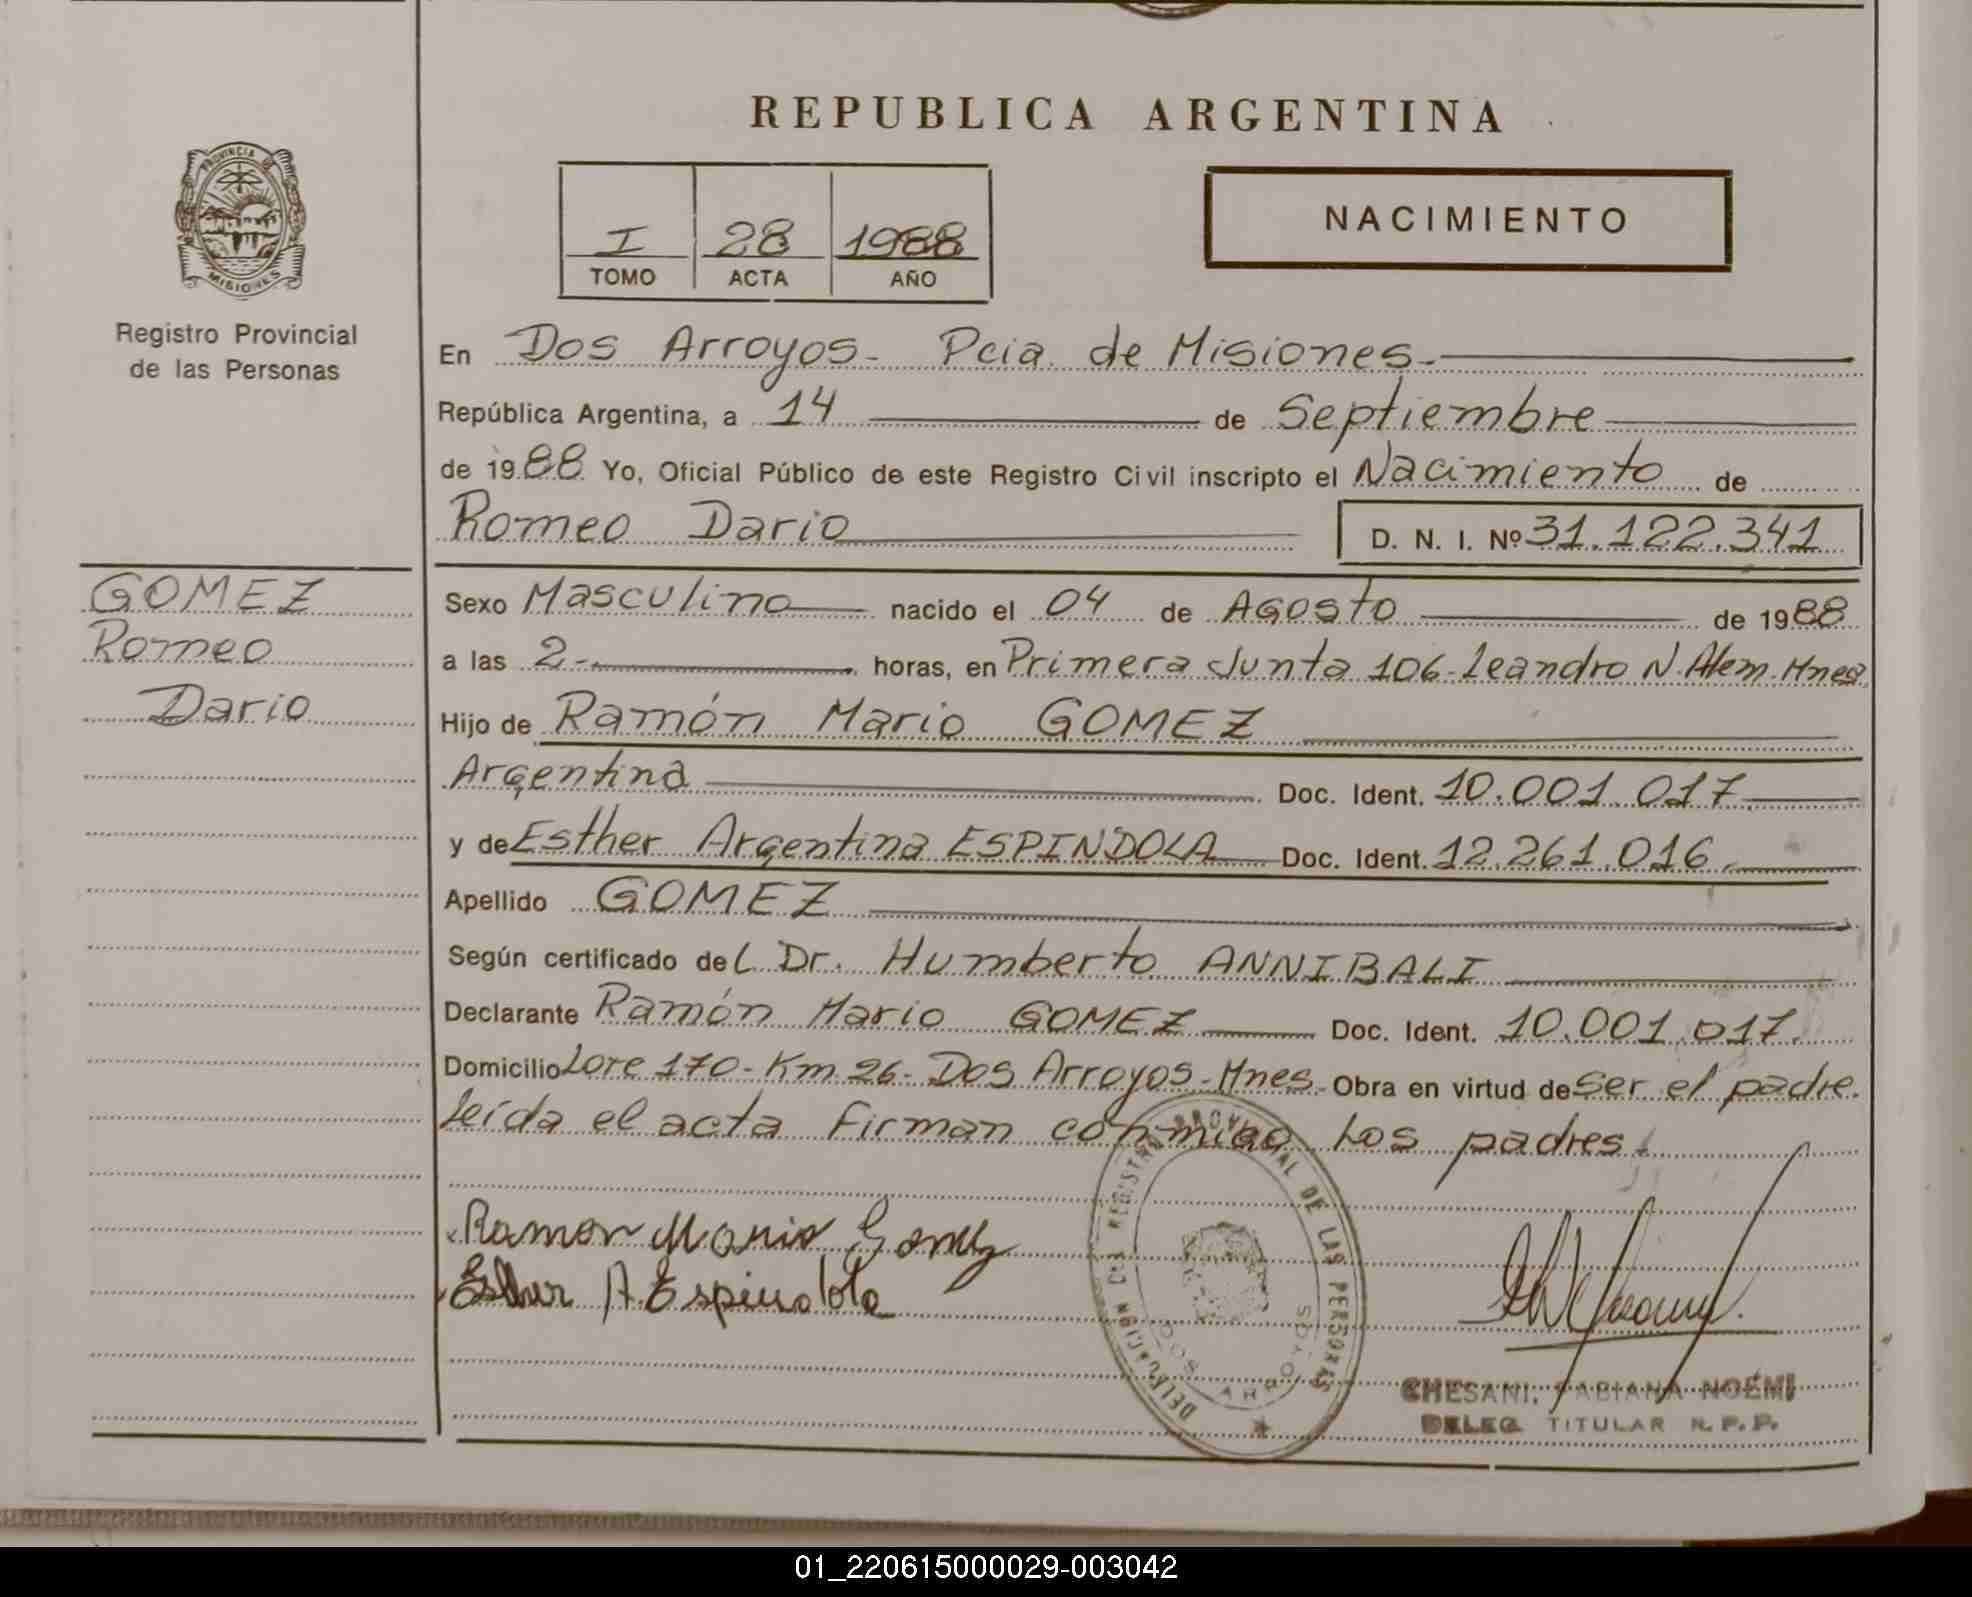 REPUBLICA ARGENTINA
PROVINCIA DE
MISIONES
Registro Provincial
de las Personas
I 28 1988
TOMO ACTA AÑO
NACIMIENTO
En Dos Arroyos- Pcia. de Misiones.-
República Argentina, a 14 de Septiembre
de 1988 Yo, Oficial Público de este Registro Civil inscripto el Nacimiento de
Romeo Dario D. N. I. Nº 31.122.341
GOMEZ
Romeo
Dario
Sexo Masculino nacido el 04 de AGOSTO de 1988
a las 2.- horas, en Primera Junta 106-Leandro N. Alem. Mnes.
Hijo de Ramón Mario GOMEZ
Argentina Doc. Ident. 10.001.017
y de Esther Argentina ESPINDOLA Doc. Ident. 12.261.016.
Apellido GOMEZ
Según certificado del Dr. Humberto ANNIBALI
Declarante Ramón Mario GOMEZ Doc. Ident. 10.001.017.
Domicilio Lote 170-Km 26- Dos Arroyos-Mnes. Obra en virtud de ser el padre.
leída el acta firman conmigo los padres.
Ramon Mario Gomez
Esther A. Espindola
DELEGACION DEL REGISTRO PROVINCIAL DE LAS PERSONAS
DOS ARROYOS
CHESANI, FABIANA NOEMI
DELEG TITULAR R. P. P.
01_220615000029-003042